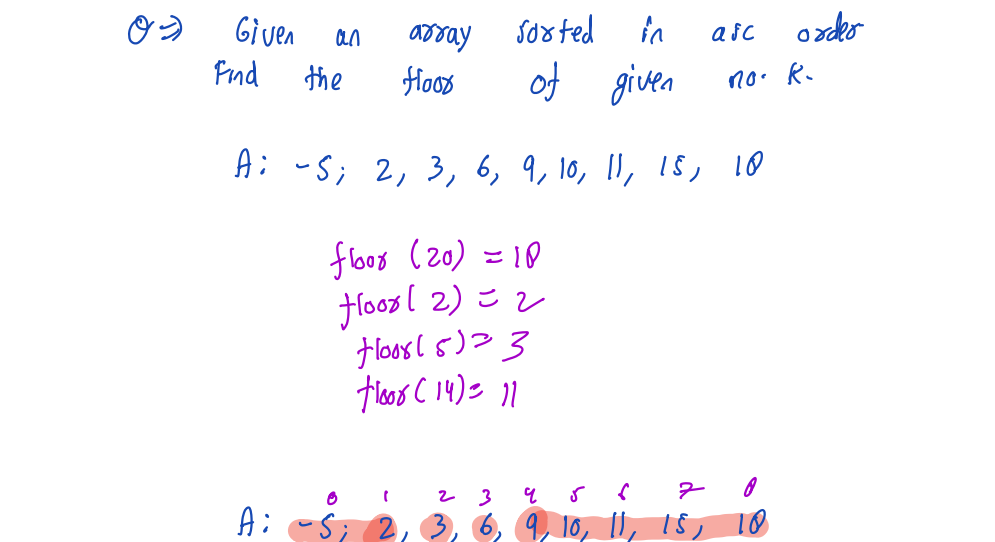 Q ⇒ Given an array sorted in asc order
Find the floor of given no. K.
A: -5; 2, 3, 6, 9, 10, 11, 15, 18
floor (20) = 18
floor( 2) = 2
floor( 5) = 3
floor( 14) = 11
0 1 2 3 4 5 6 7 8
A: -5; 2, 3, 6, 9, 10, 11, 15, 18